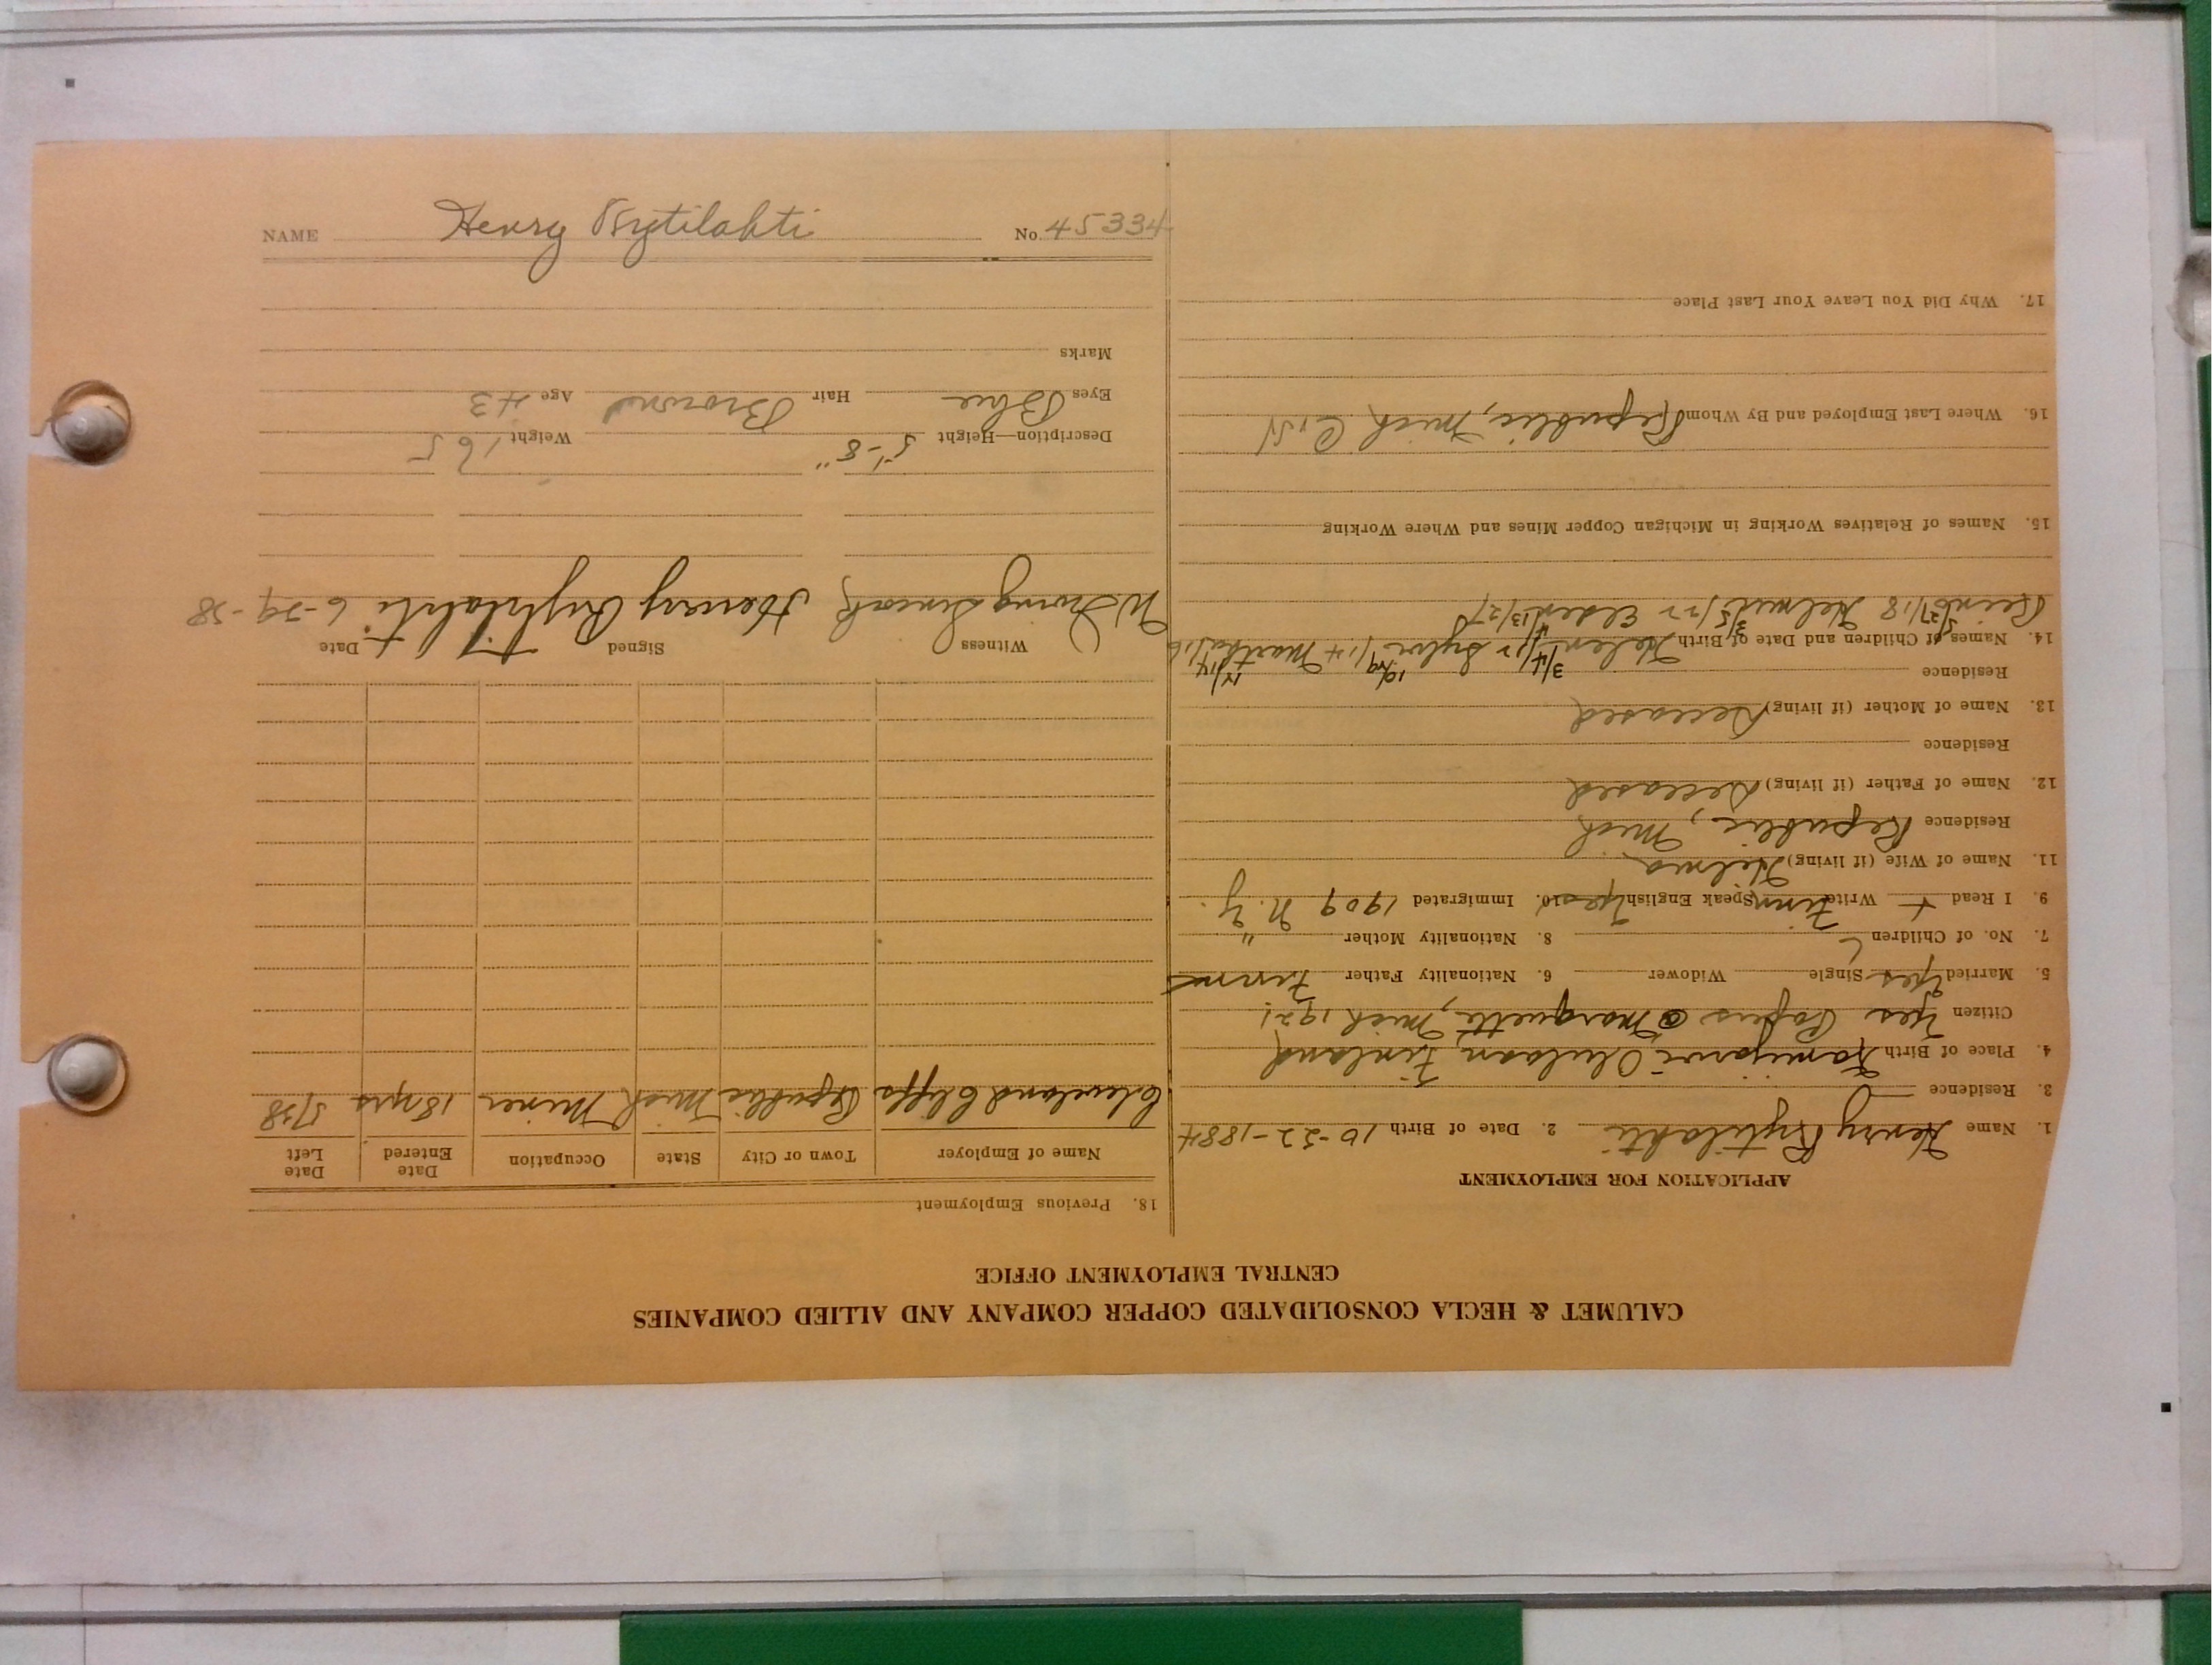 CALUMET & HECLA CONSOLIDATED COPPER COMPANY AND ALLIED COMPANIES
CENTRAL EMPLOYMENT OFFICE
APPLICATION FOR EMPLOYMENT
1. Name Henry Rytilahti 2. Date of Birth 10-22-1884
3. Residence
4. Place of Birth Kemijarvi Oulun Finland
Citizen Yes Papers @ Marquette, Mich 1921
5. Married Yes Single Widower 6. Nationality Father Finn
7. No. of Children 8. Nationality Mother "
9. I Read + Write Finn Speak English Yes 10. Immigrated 1909 N.Y.
11. Name of Wife (if living) Hilma
Residence Republic, Mich
12. Name of Father (if living) Deceased
Residence
13. Name of Mother (if living) Deceased
Residence
14. Names of Children and Date of Birth Helen 3/4/12 Sylvi 10/29/14 Martha 12/14/16
Reino 5/27/18 Helmi 3/5/22 Elsen 4/13/27
15. Names of Relatives Working in Michigan Copper Mines and Where Working
16. Where Last Employed and By Whom Republic, Mich
17. Why Did You Leave Your Last Place
18. Previous Employment
Name of Employer Town or City State Occupation Date Entered Date Left
Cleveland Cliffs Republic Mich Miner 18 yrs 5/38
Witness Signed Date
Henry Rytilahti 6-29-38
Description—Height 5'-8" Weight 165
Eyes Blue Hair Brown Age 43
Marks
NAME Henry Rytilahti No. 45334